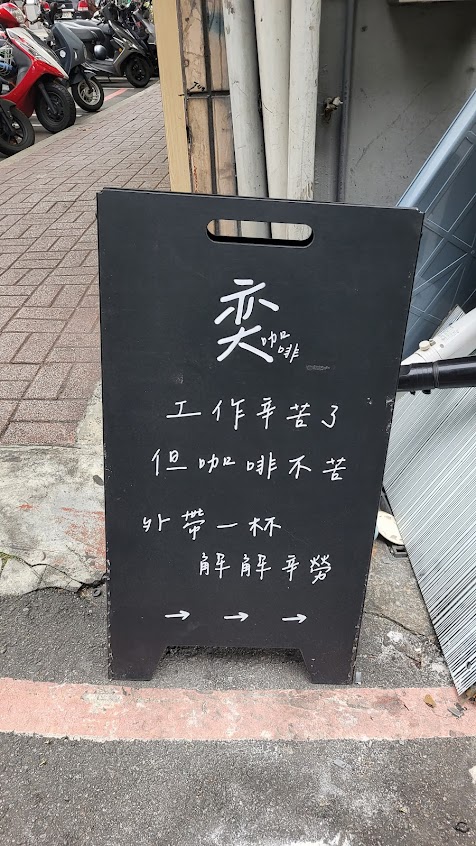 奕咖啡
工作辛苦了
但咖啡不苦
外帶一杯
解解辛勞
→ → →